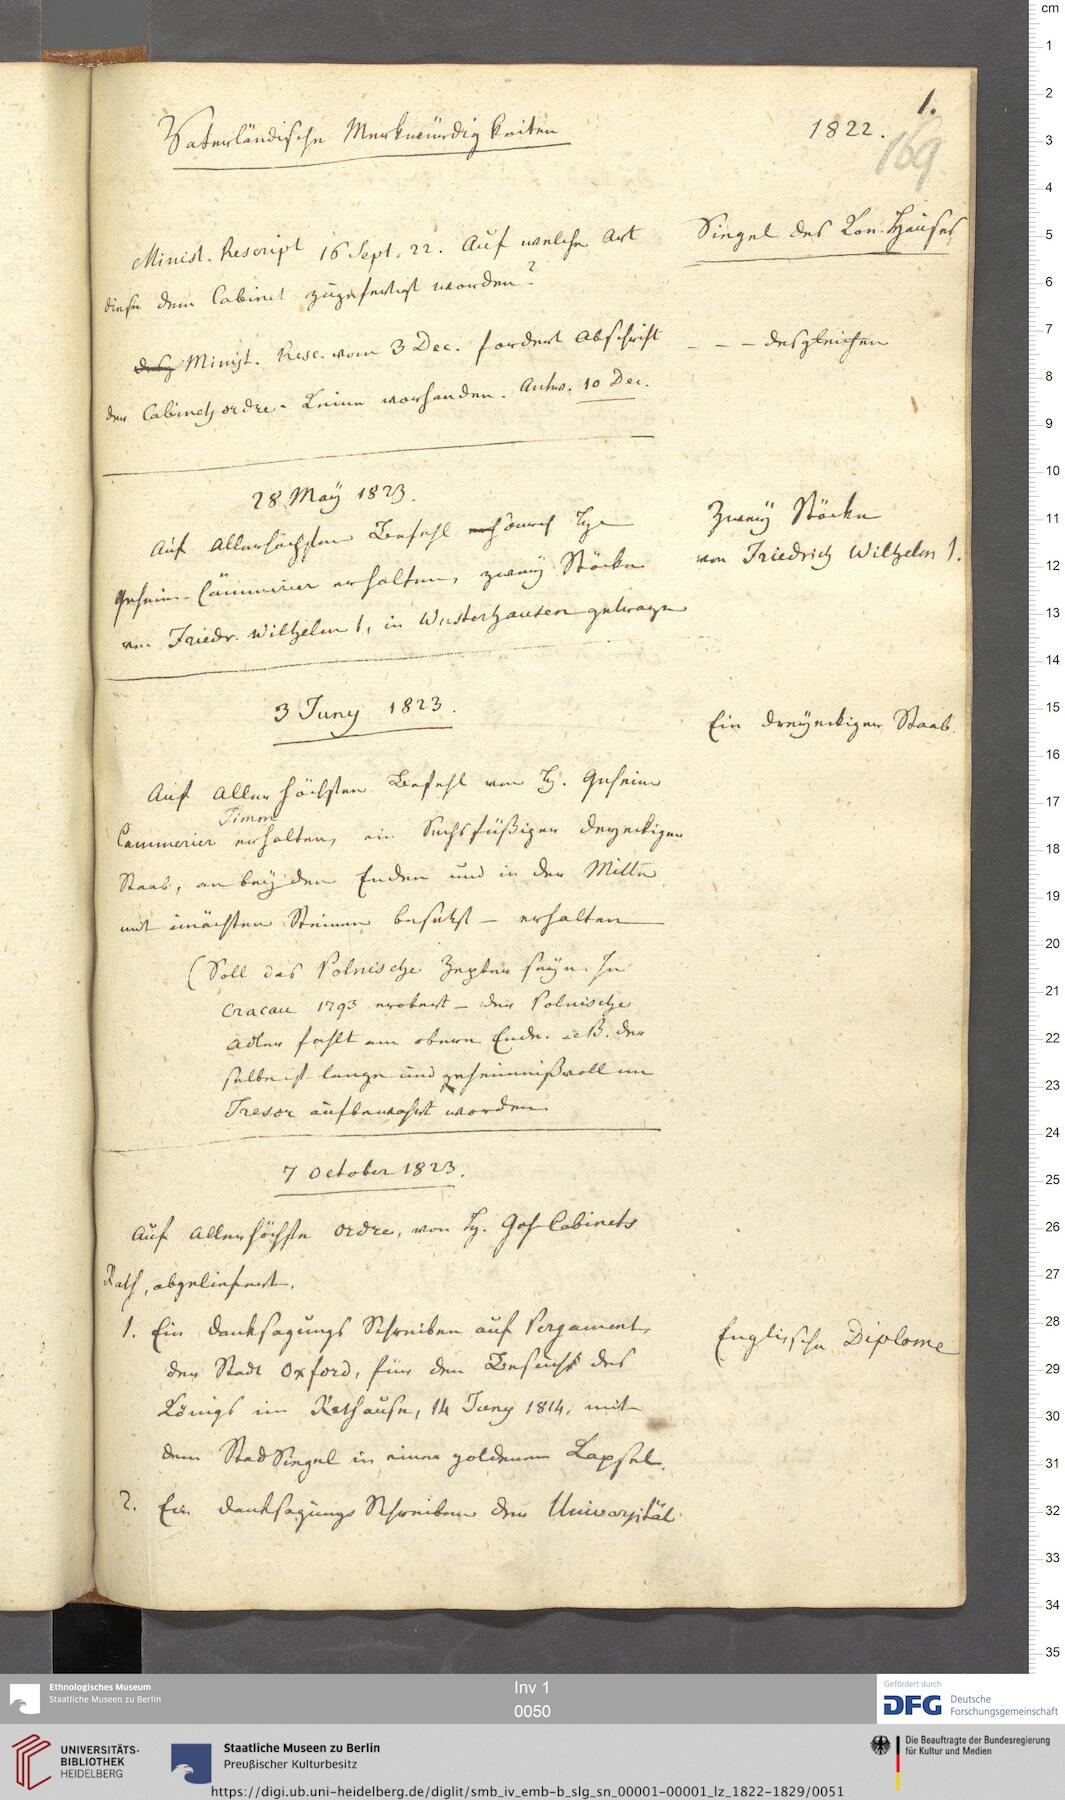 1.
Vaterländische Merkwürdigkeiten
1822.
169
Minist. Rescript 16 Sept. 22. Auf welche Art
diese dem Cabinet zugefertigt worden?
Siegel des Kön. Hauses
Minist. Resc. vom 3 Dec. fordert Abschrift
der Cabinetsordre - Keine vorhanden. Antw. 10 Dec.
- - - desgleichen
28 May 1823.
Auf Allerhöchsten Befehl durch H
Geheim-Cämmerier erhalten, zwey Stöcke
von Friedr. Wilhelm 1, in Wusterhausen getragen
Zwey Stöcke
von Friedrich Wilhelm 1.
3 Juny 1823.
Ein dreyeckiger Staab.
Auf Allerhöchsten Befehl von H. Geheim
Timm
Cammerier erhalten, ein Sechsfüßiger dreyeckiger
Staab, an beyden Enden und in der Mitte
mit unächten Steinen besetzt - erhalten
(Soll das Polnische Zepter seyn. In
Cracau 1793 erobert - der Polnische
Adler fehlt am obern Ende. NB. der
selbe ist lange und geheimnißvoll im
Tresor aufbewahrt worden.
7 October 1823.
Auf Allerhöchste Ordre, von H. Geh Cabinets
Rath, abgeliefert.
1. Ein Danksagungs Schreiben auf Pergament,
der Stadt Oxford, für den Besuch des
Königs im Rathause, 14 Juny 1814, mit
dem StadSiegel in einer goldenen Kapsel.
Englische Diplome
2. Ein Danksagungs Schreiben der Universität
cm
1
2
3
4
5
6
7
8
9
10
11
12
13
14
15
16
17
18
19
20
21
22
23
24
25
26
27
28
29
30
31
32
33
34
35
Ethnologisches Museum
Staatliche Museen zu Berlin
Inv 1
0050
Gefördert durch
DFG Deutsche
Forschungsgemeinschaft
UNIVERSITÄTS-
BIBLIOTHEK
HEIDELBERG
Staatliche Museen zu Berlin
Preußischer Kulturbesitz
Die Beauftragte der Bundesregierung
für Kultur und Medien
https://digi.ub.uni-heidelberg.de/diglit/smb_iv_emb-b_slg_sn_00001-00001_lz_1822-1829/0051